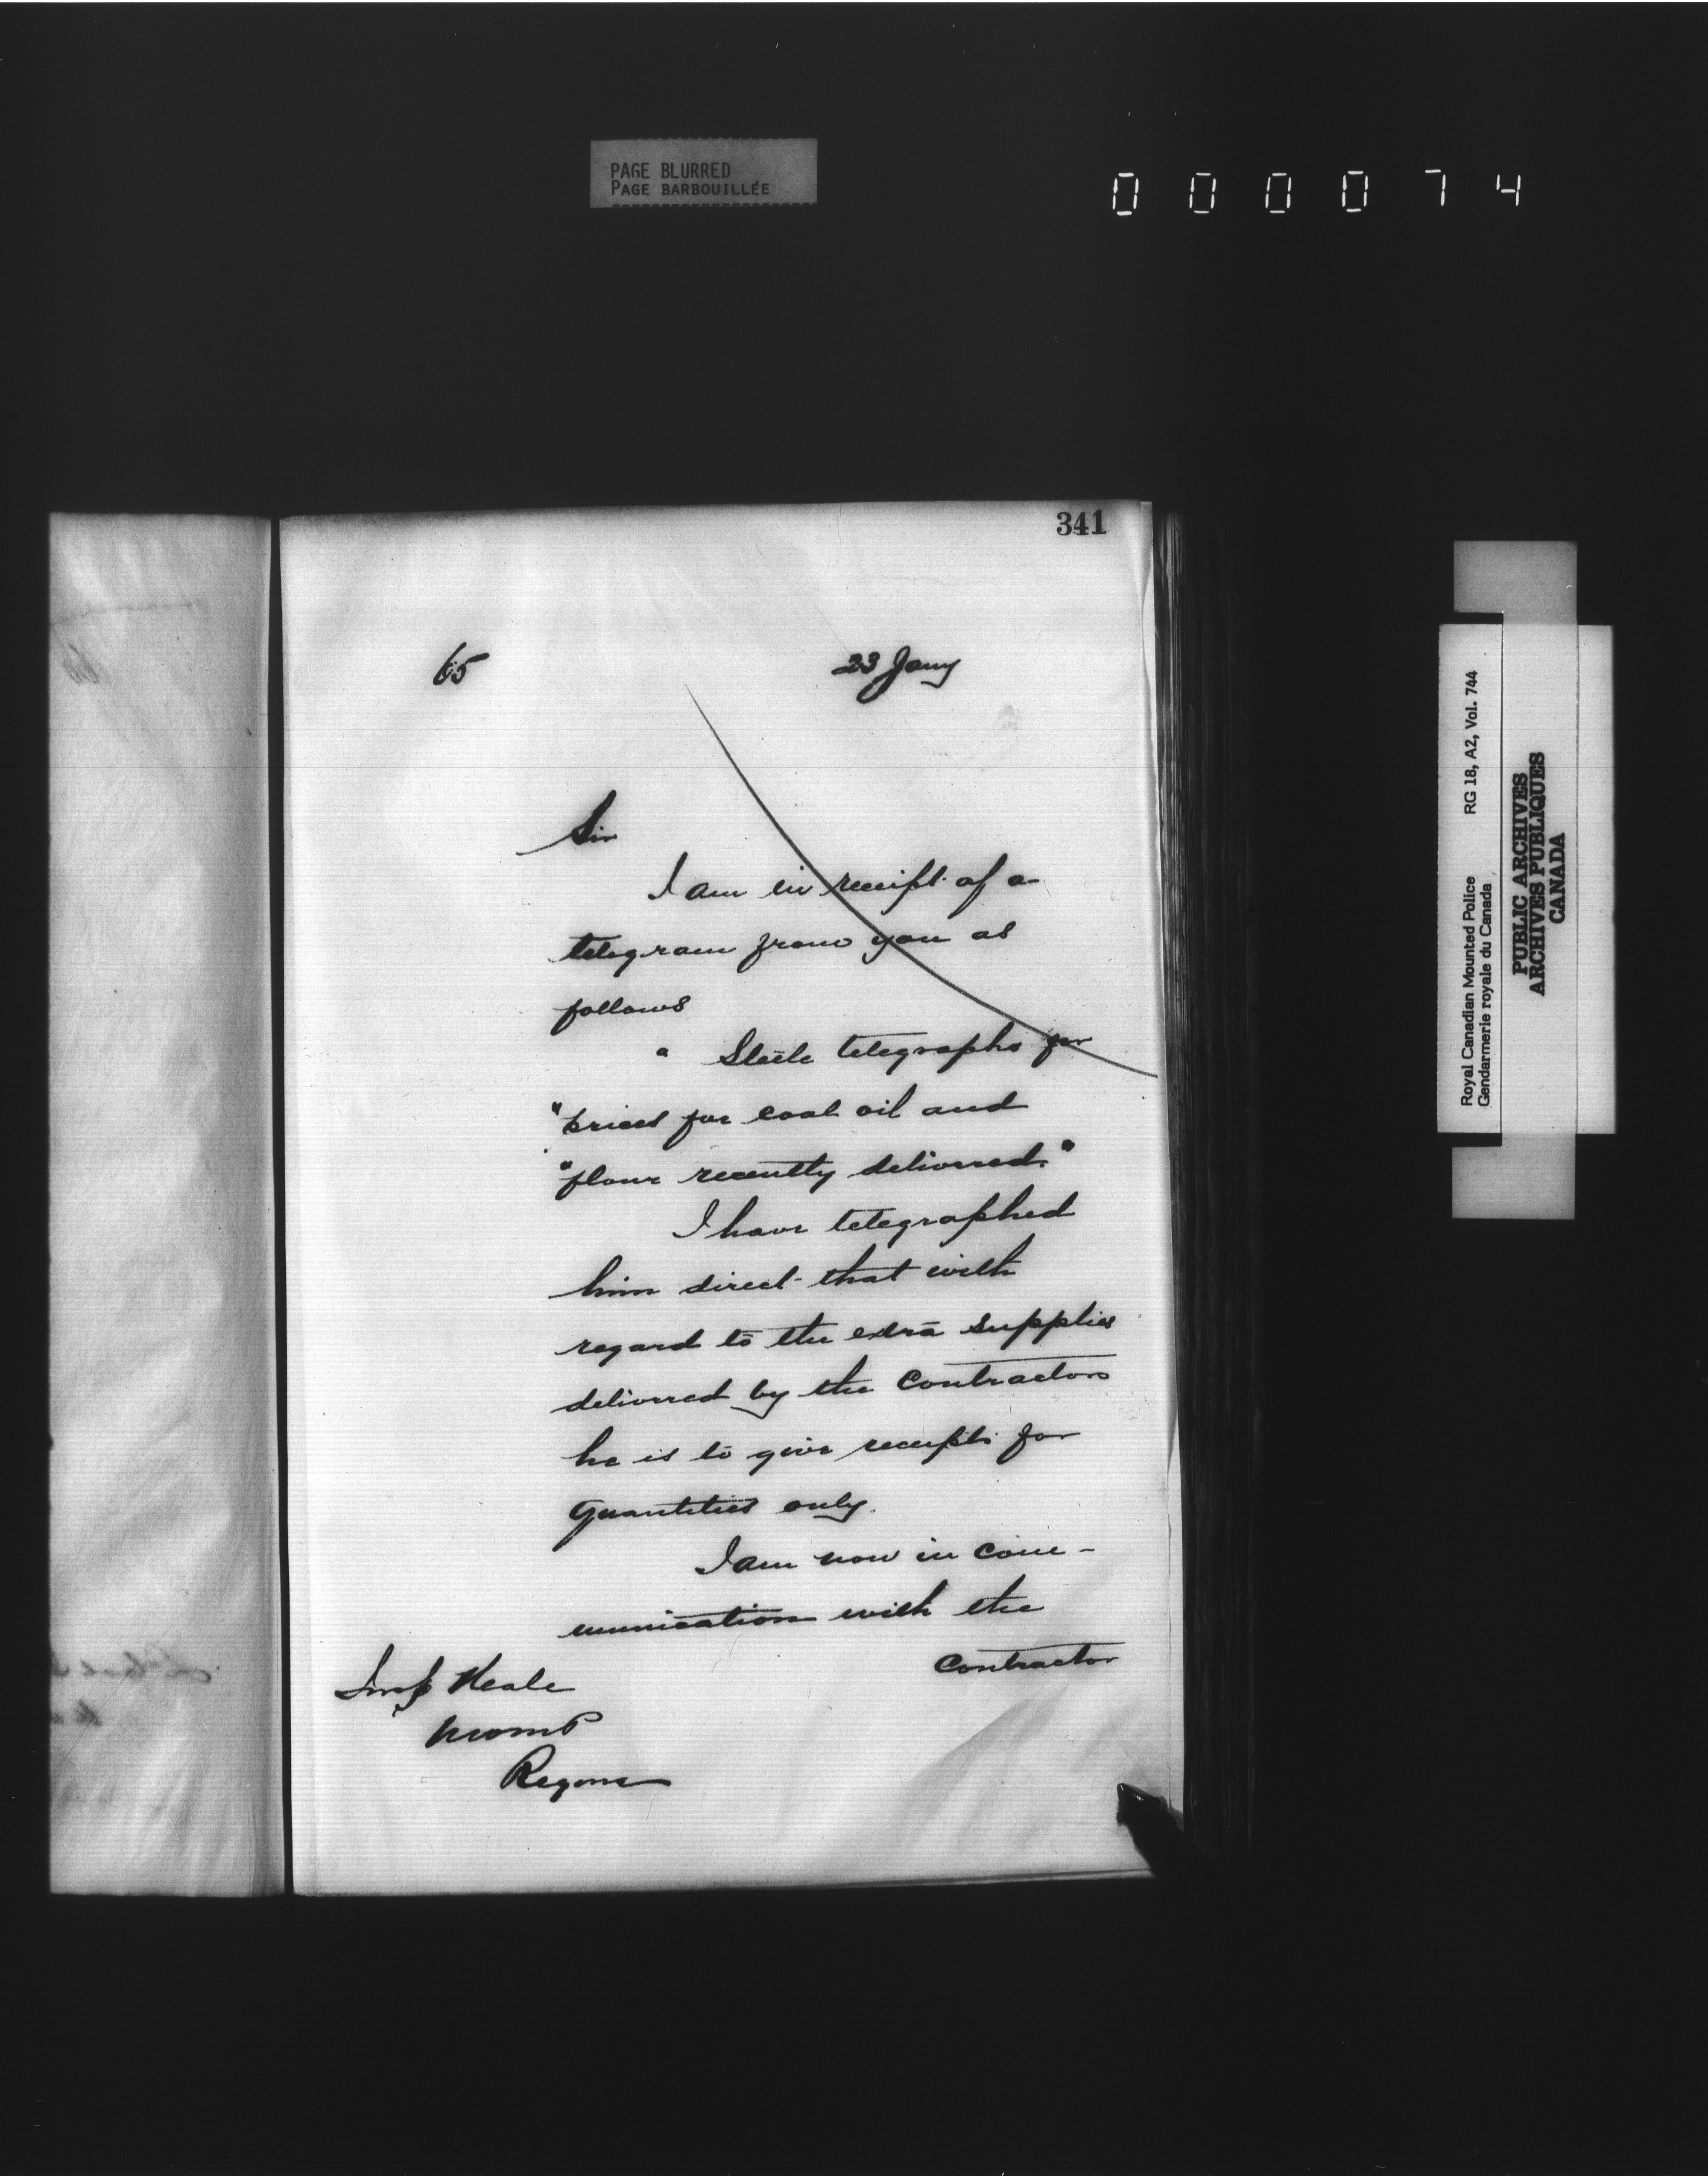 PAGE BLURRED
PAGE BARBOUILLÉE
0 0 0 0 7 4
341
65
23 Jany
Sir
I am in receipt of a
telegram from you as
follows
" Steele telegraphs for
"prices for coal oil and
"flour recently delivered."
I have telegraphed
him direct that with
regard to the extra supplies
delivered by the Contractors
he is to give receipts for
quantities only.
I am now in com-
munication with the
Contractor
Insp Neale
NWMP
Regina
Royal Canadian Mounted Police RG 18, A2, Vol. 744
Gendarmerie royale du Canada
PUBLIC ARCHIVES
ARCHIVES PUBLIQUES
CANADA